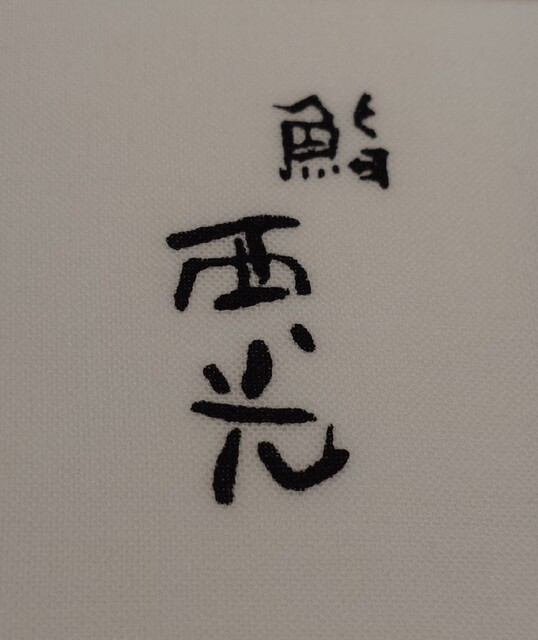 鮨
西光